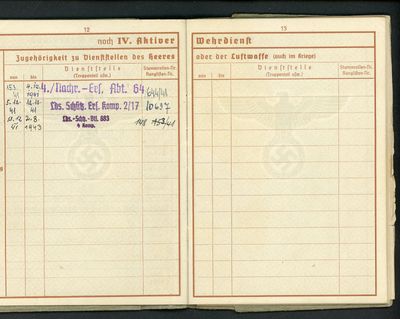 12
noch IV. Aktiver
Zugehörigkeit zu Dienststellen des Heeres
von
bis
Dienststelle
(Truppenteil usw.)
Stammrollen-Nr.
Ranglisten-Nr.
4./Nachr.-Ers. Abt. 64
41 1941
644/41
5.12. 12.12.
Lds. Schütz. Ers. Komp. 2/17
10637
41 41
12.12. 2.8.
Lds.-Sch.-Btl. 883
41 1943
4 Komp.
148 153/41
13
Wehrdienst
oder der Luftwaffe (auch im Kriege)
von
bis
Dienststelle
(Truppenteil usw.)
Stammrollen-Nr.
Ranglisten-Nr.